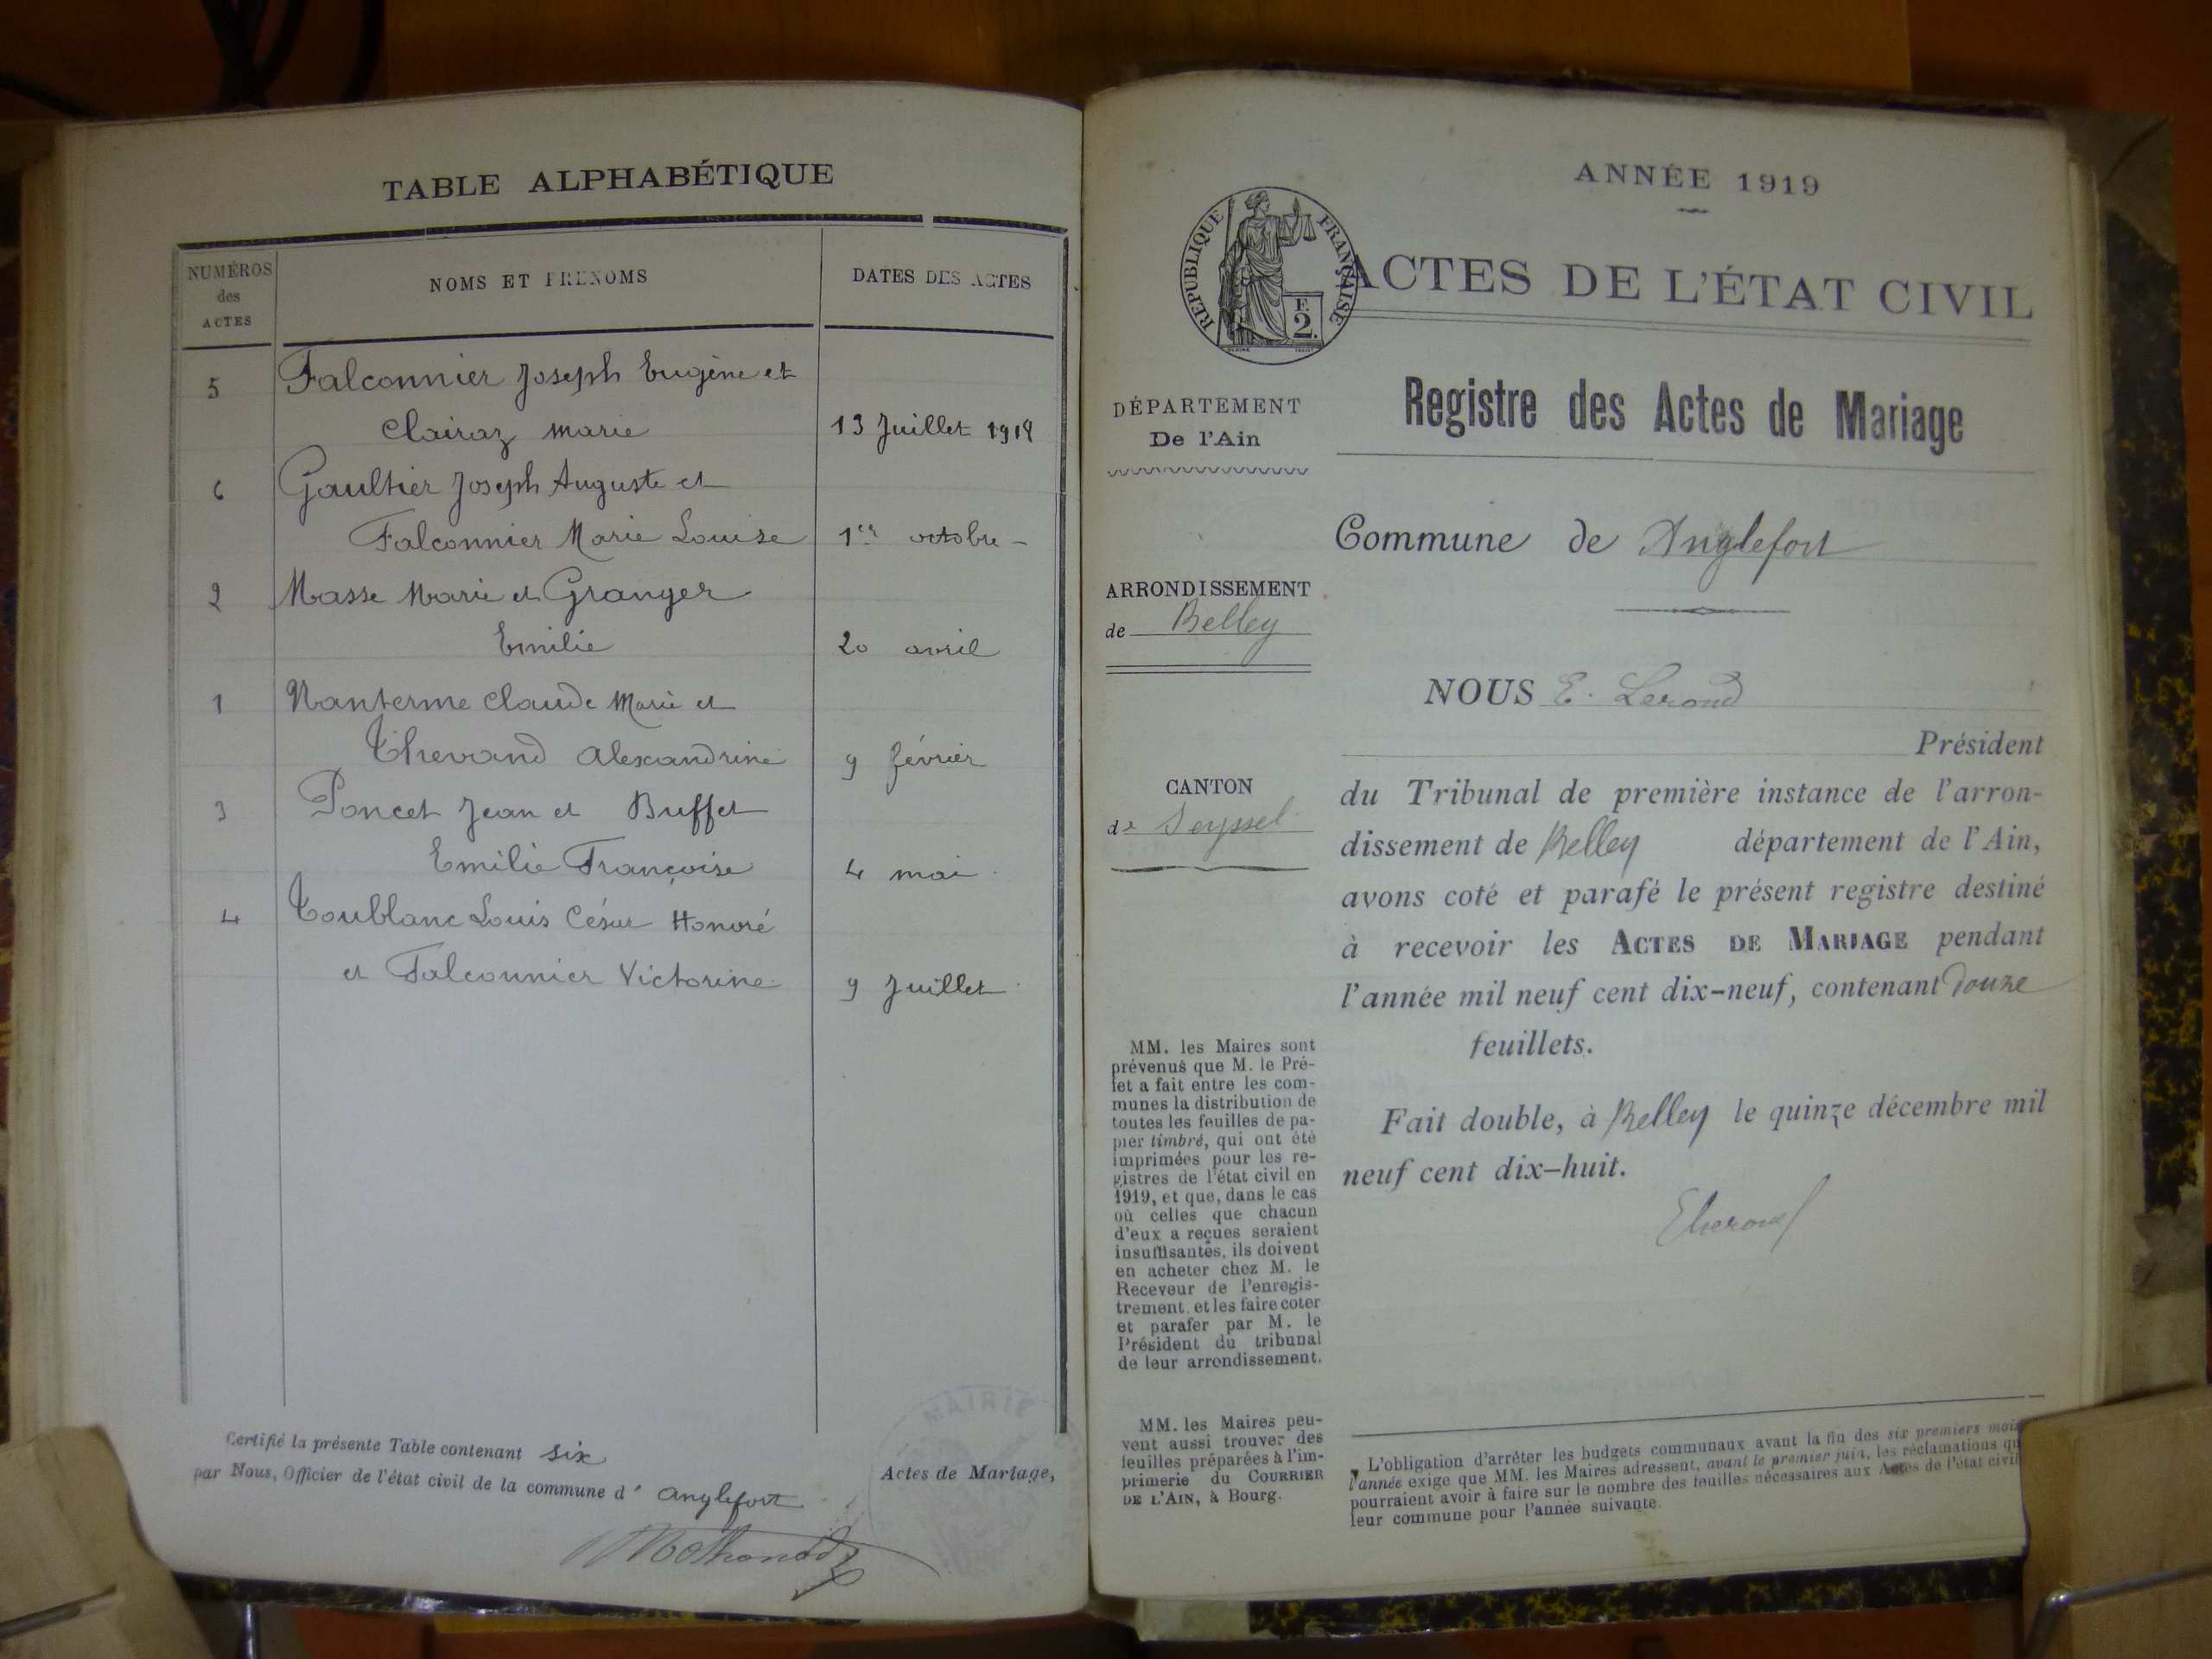 TABLE ALPHABÉTIQUE
NUMÉROS
des
ACTES
NOMS ET PRÉNOMS
DATES DES ACTES
5 Falconnier Joseph Eugène et
Clairaz Marie 13 Juillet 1918
6 Gaultier Joseph Auguste et
Falconnier Marie Louise 1er octobre -
2 Masse Marie et Granger
Emilie 20 avril
1 Nanterme Claude Marie et
Thevand Alexandrine 9 février
3 Poncet Jean et Buffet
Emilie Françoise 4 mai
4 Toublanc Louis César Honoré
et Falconnier Victorine 9 Juillet
Certifié la présente Table contenant six Actes de Mariage,
par Nous, Officier de l'état civil de la commune d' Anglefort
MAIRIE
ANNÉE 1919
RÉPUBLIQUE FRANÇAISE
F.
2.
ACTES DE L'ÉTAT CIVIL
Registre des Actes de Mariage
DÉPARTEMENT
De l'Ain
Commune de Anglefort
ARRONDISSEMENT
de Belley
NOUS E. Lerond
Président
CANTON
de Seyssel
du Tribunal de première instance de l'arron-
dissement de Belley département de l'Ain,
avons coté et parafé le présent registre destiné
à recevoir les ACTES DE MARIAGE pendant
l'année mil neuf cent dix-neuf, contenant douze
feuillets.
Fait double, à Belley le quinze décembre mil
neuf cent dix-huit.
MM. les Maires sont
prévenus que M. le Pré-
fet a fait entre les com-
munes la distribution de
toutes les feuilles de pa-
pier timbré, qui ont été
imprimées pour les re-
gistres de l'état civil en
1919, et que, dans le cas
où celles que chacun
d'eux a reçues seraient
insuffisantes, ils doivent
en acheter chez M. le
Receveur de l'enregis-
trement, et les faire coter
et parafer par M. le
Président du tribunal
de leur arrondissement.
MM. les Maires peu-
vent aussi trouver des
feuilles préparées à l'im-
primerie du COURRIER
DE L'AIN, à Bourg.
L'obligation d'arrêter les budgets communaux avant la fin des six premiers mois
l'année exige que MM. les Maires adressent, avant le premier juin, les réclamations qu
pourraient avoir à faire sur le nombre des feuilles nécessaires aux Actes de l'état civil
leur commune pour l'année suivante.